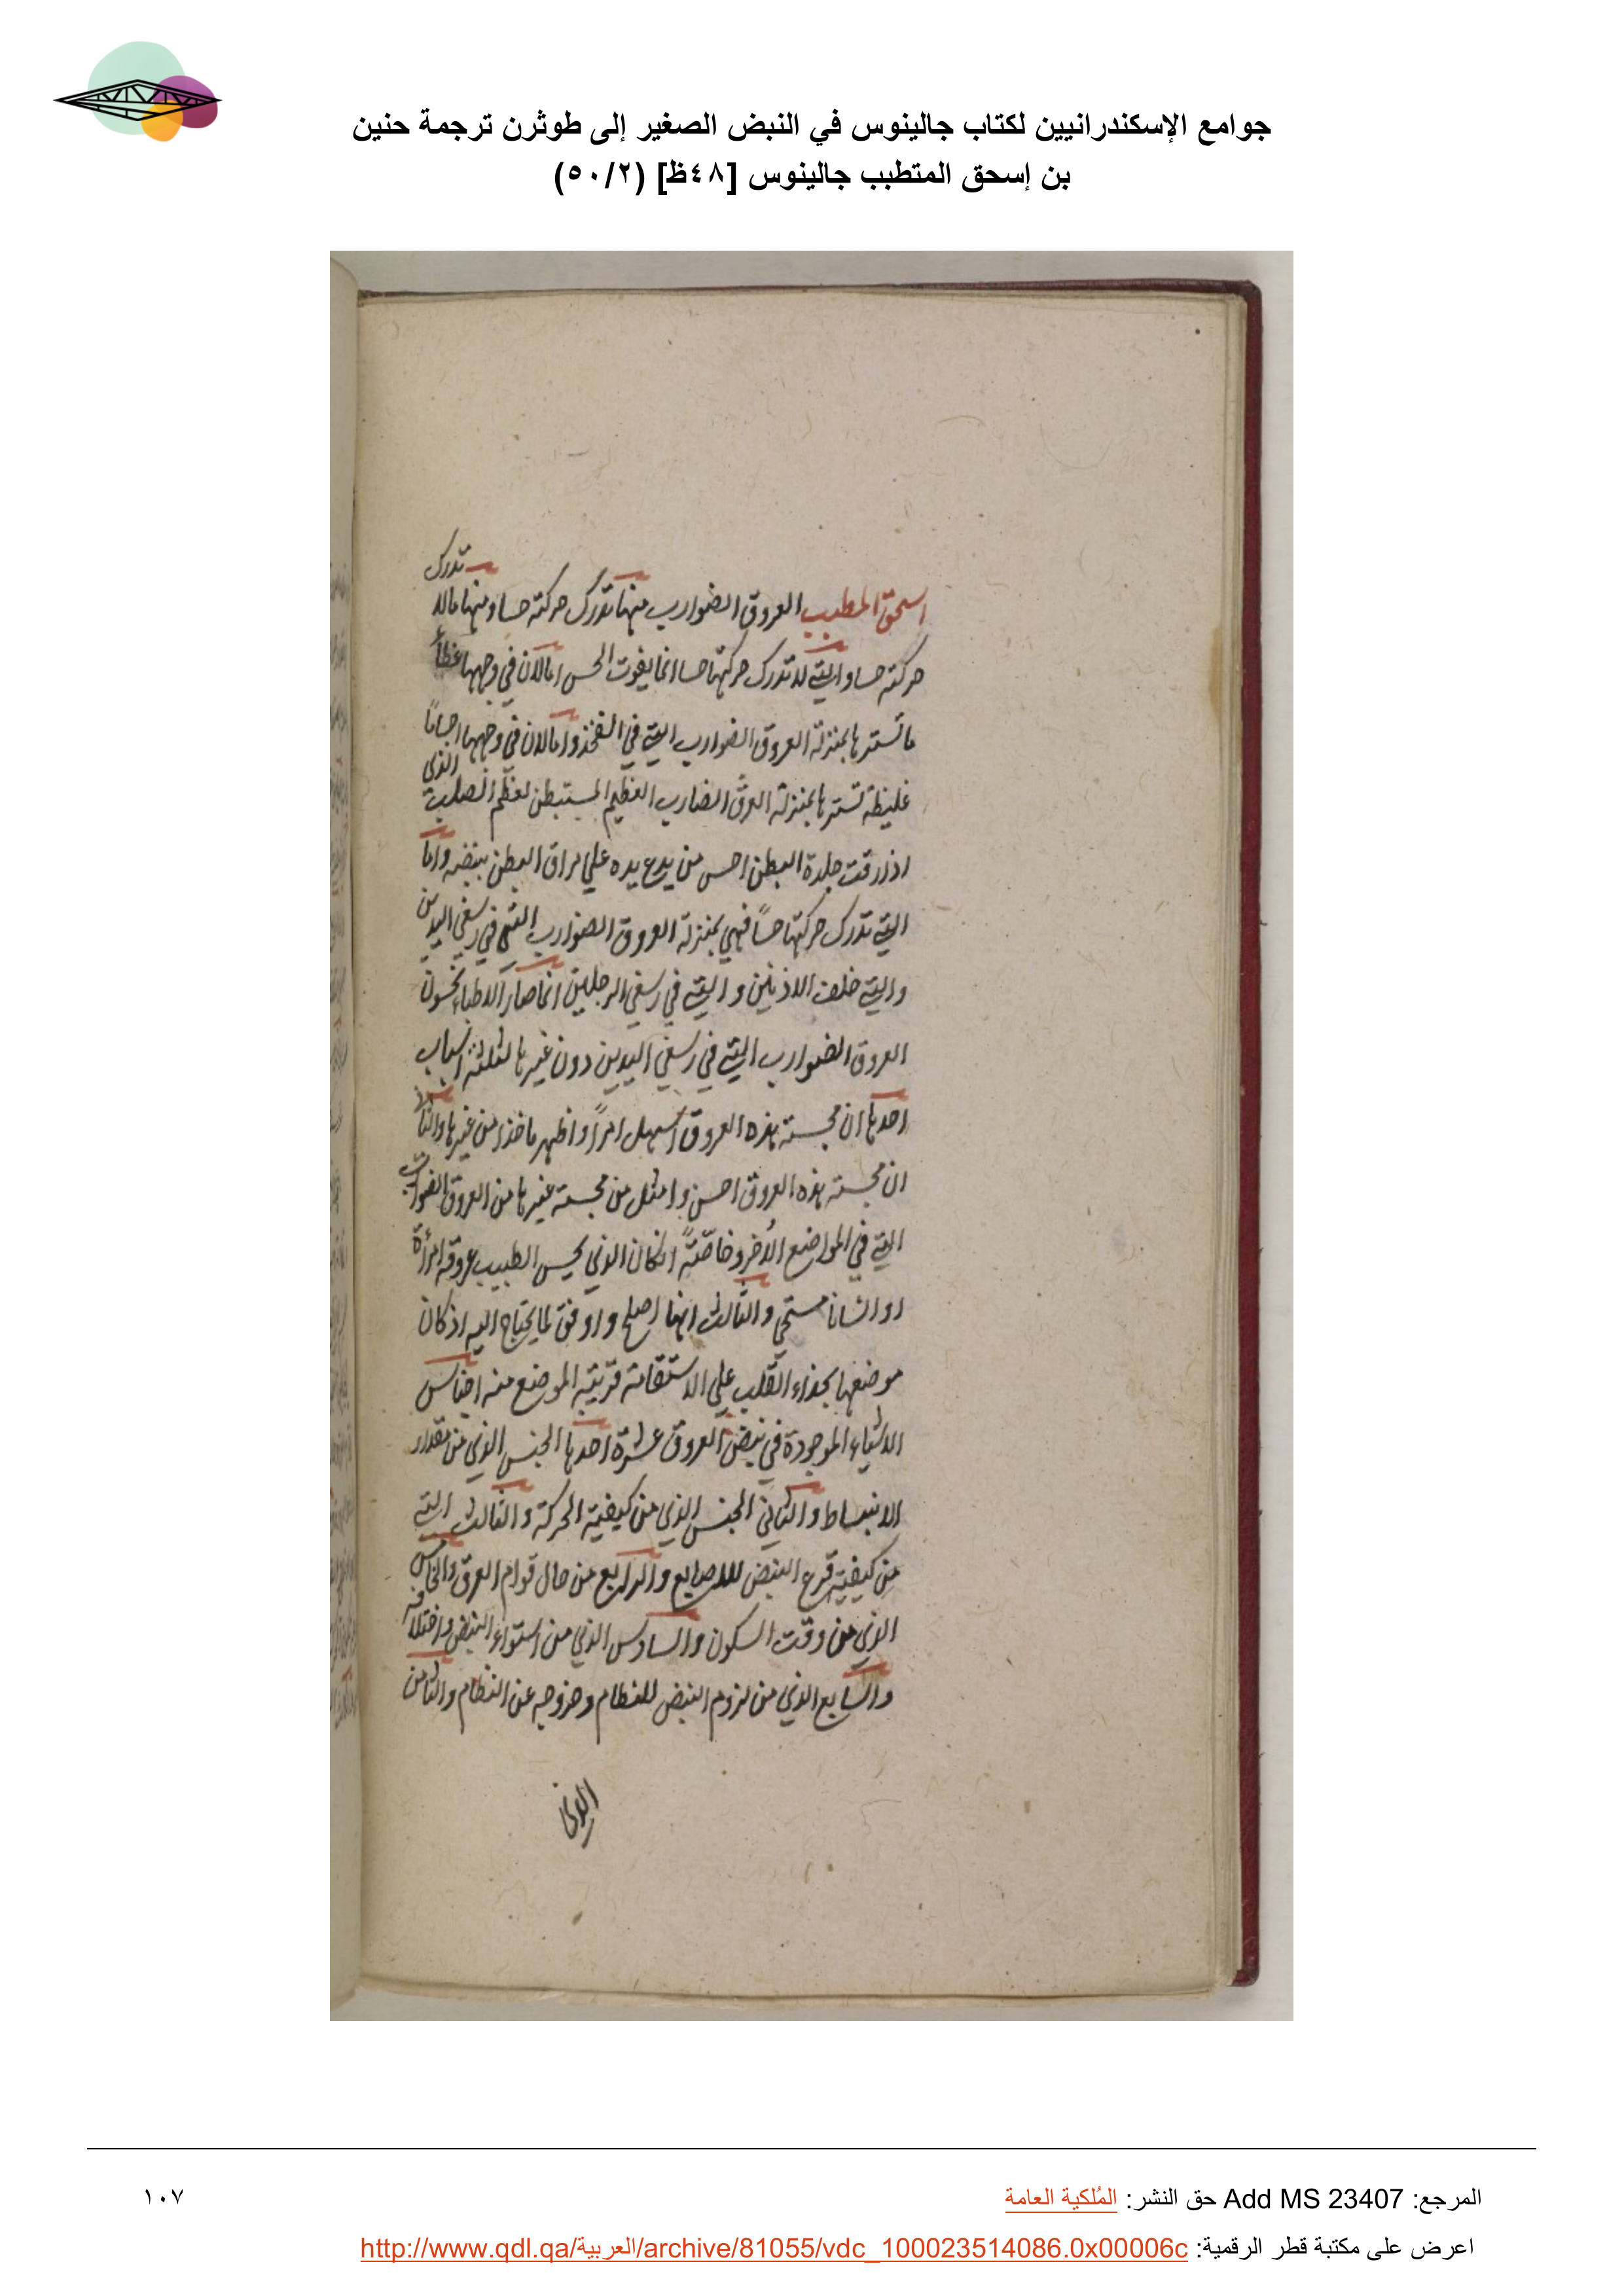 جوامع الإسكندرانيين لكتاب جالينوس في النبض الصغير إلى طوثرن ترجمة حنين
بن إسحق المتطبب جالينوس [٤٨ظ] (٥٠/٢)
اسحق المتطبب العروق الضوارب منها ما تدرك حركته حسا ومنها ما لا تدرك
حركته حسا والتي لا تدرك حركتها حسا انما يفوت الحس اما لان في وجهها غطأ
ما تسترها بمنزلة العروق الضوارب التي في الفخذ واما لان في وجهها اجساما
غليظة تسترها بمنزلة العرق الضارب العظيم المستبطن لعظم الصلب الذي
اذا رقت جلدة البطن احس من يدع يده علي مراق البطن بنبضه واما
التي تدرك حركتها حسًا فهي بمنزلة العروق الضوارب التي في رسغي اليدين
والتي خلف الاذنين والتي في رسغي الرجلين انما صار الاطباء يجسون
العروق الضوارب التي في رسغي اليدين دون غيرها لثلثة اسباب
احدها ان مجسته هذه العروق اسهل امرًا واظهر ماخذا من غيرها والثاني
ان مجسته هذه العروق احسن وامثل من مجسته غيرها من العروق الضوارب
التي في المواضع الأخر وخاصّتهً ان كان الذي يجس الطبيب عروقه امرأة
او انسانا مستحي والثالث انها اصلح واوفق لما يحتاج اليه اذ كان
موضعها بحذاء القلب علي الاستقامة قريبة الموضع منه اجناس
الاشياء الموجودة في نبض العروق عشرة احدها الجنس الذي من مقدار
الانبساط والثاني الجنس الذي من كيفية الحركة والثالث التي
من كيفية قرع النبض للاصابع والرابع من حال قوام العرق والخامس
الذي من وقت السكون والسادس الذي من استواء النبض واختلافه
والسابع الذي من لزوم النبض للنظام وخروجه عن النظام والثامن
الذي
المرجع: Add MS 23407 حق النشر: المُلكية العامة
١٠٧
اعرض على مكتبة قطر الرقمية: http://www.qdl.qa/العربية/archive/81055/vdc_100023514086.0x00006c